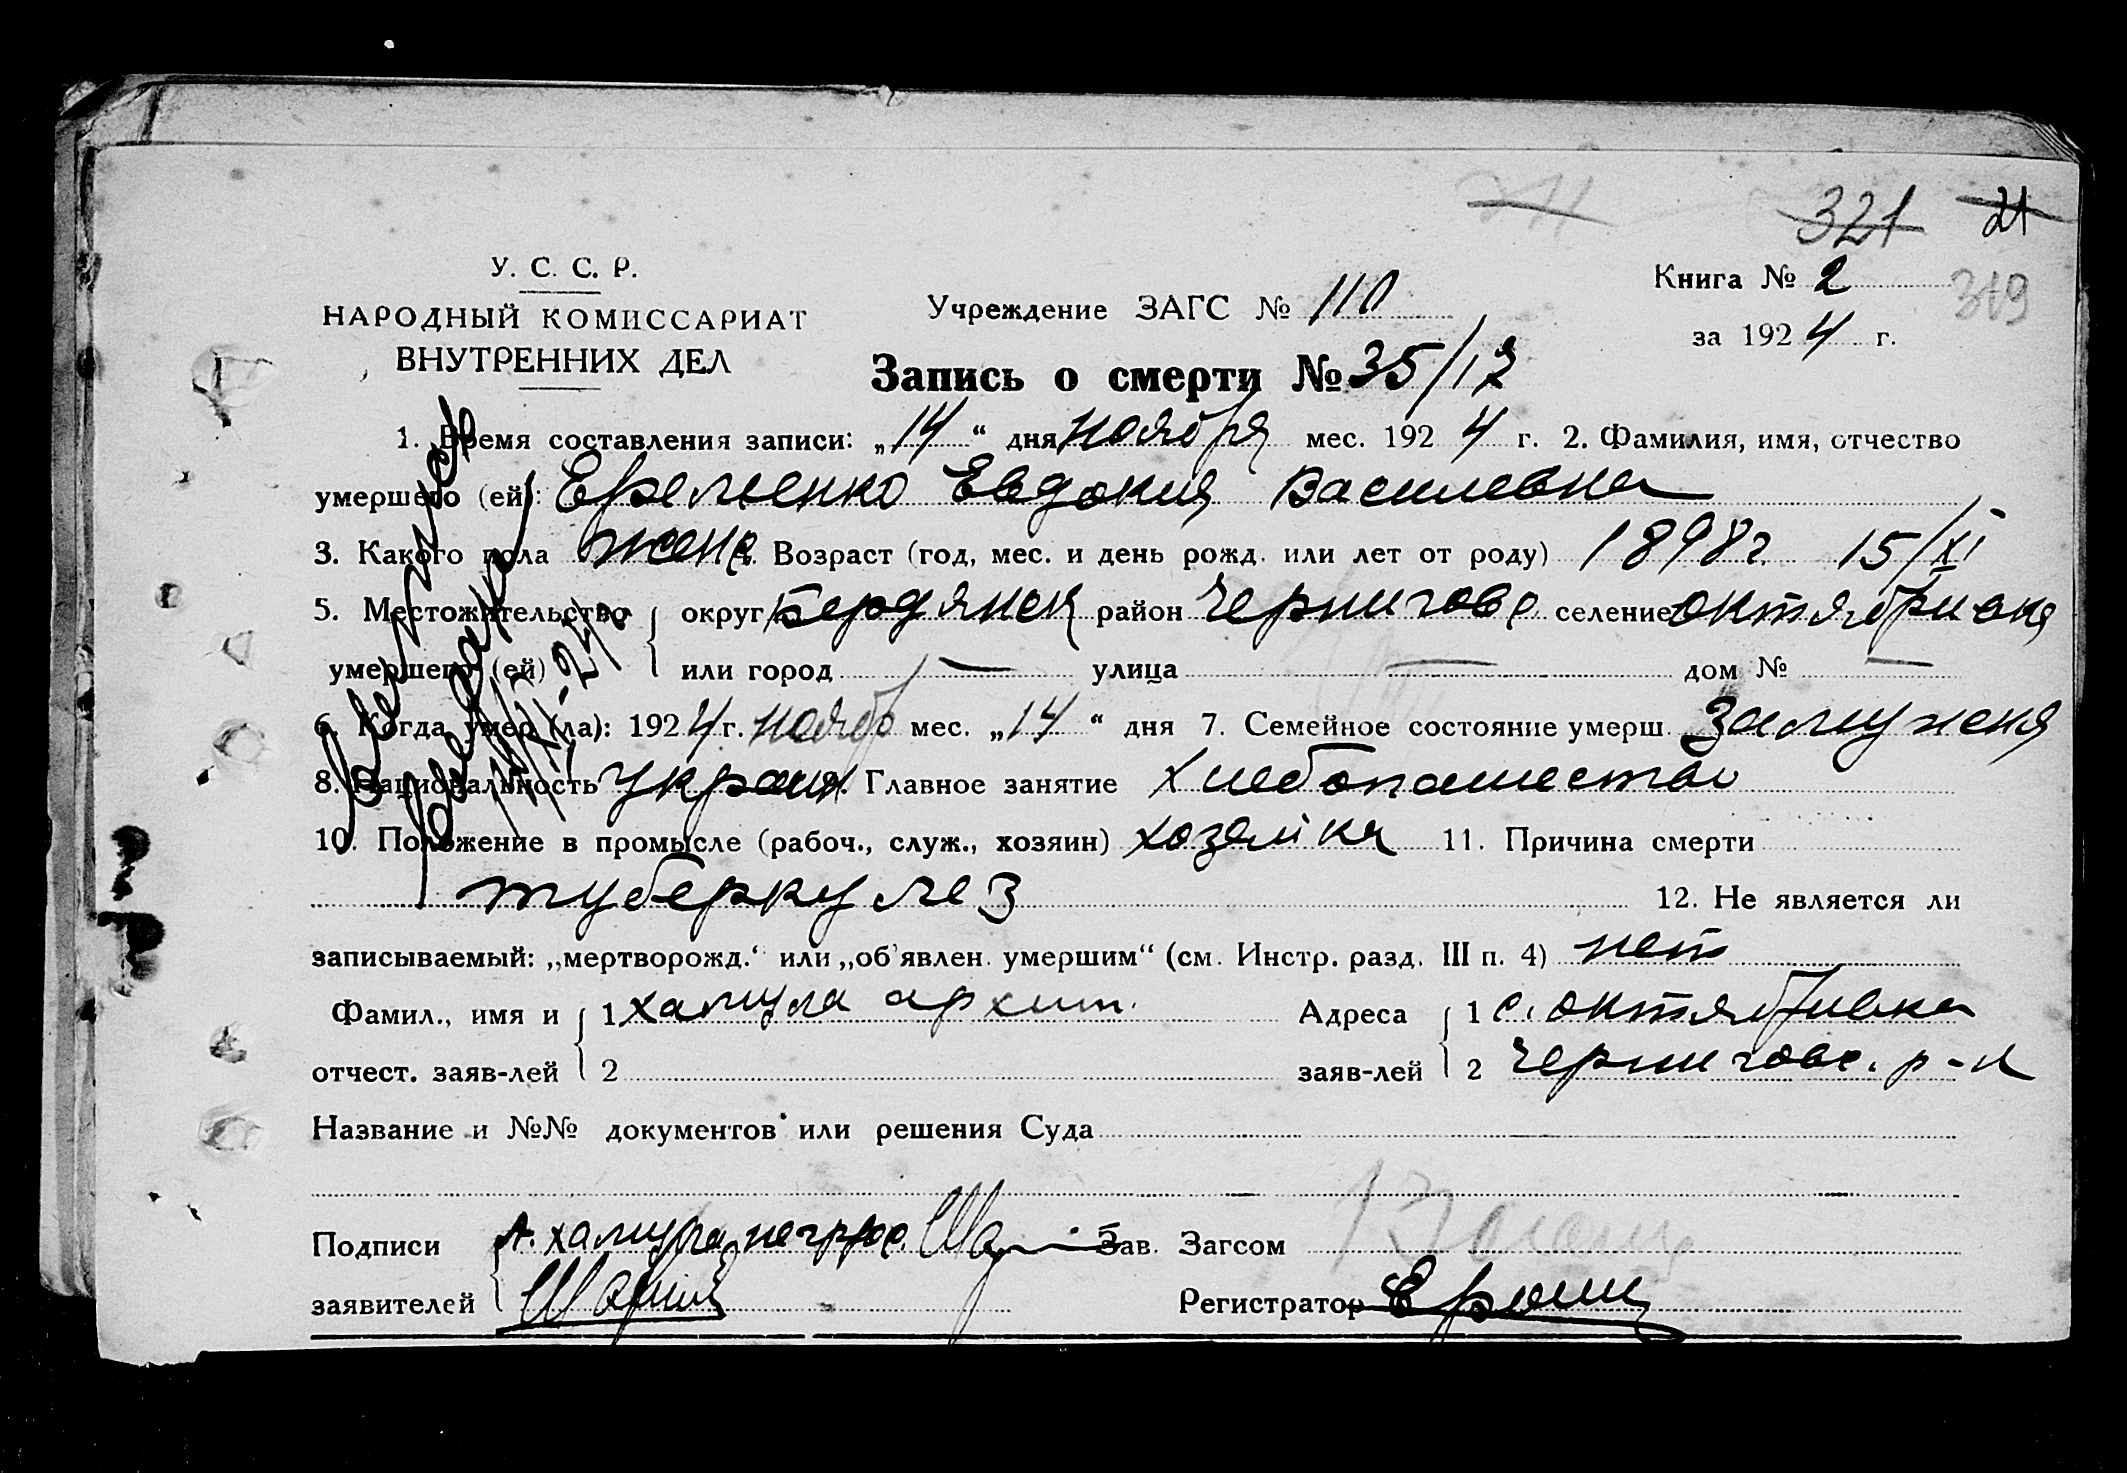 321 21
У. С. С. Р.
НАРОДНЫЙ КОМИССАРИАТ
ВНУТРЕННИХ ДЕЛ
Учреждение ЗАГС № 110
Книга № 2 319
за 1924 г.
Запись о смерти № 35/17
1. Время составления записи: „14“ дня ноября мес. 1924 г. 2. Фамилия, имя, отчество
умершего (ей): Еременко Евдокия Василевна
3. Какого пола женс. Возраст (год, мес. и день рожд. или лет от роду) 1898 г. 15/XI
5. Местожительство округ Бердянск район Черниговс. селение Октябривка
умершего (ей) или город — улица — дом № —
6. Когда умер (ла): 1924 г. нояб мес. „14“ дня 7. Семейное состояние умерш. Замужняя
8. Национальность украин. Главное занятие хлебопашество
10. Положение в промысле (рабоч., служ., хозяин) хозяйка 11. Причина смерти
туберкулез 12. Не является ли
записываемый: „мертворожд.“ или „об'явлен. умершим“ (см. Инстр. разд. III п. 4) нет
Фамил., имя и 1 Хамула Архип. Адреса 1 с. Октябривка
отчест. заяв-лей 2 заяв-лей 2 Черниговс. р-н
Название и №№ документов или решения Суда
Подписи А. Хамула неграм. Зав. Загсом
заявителей Регистратор